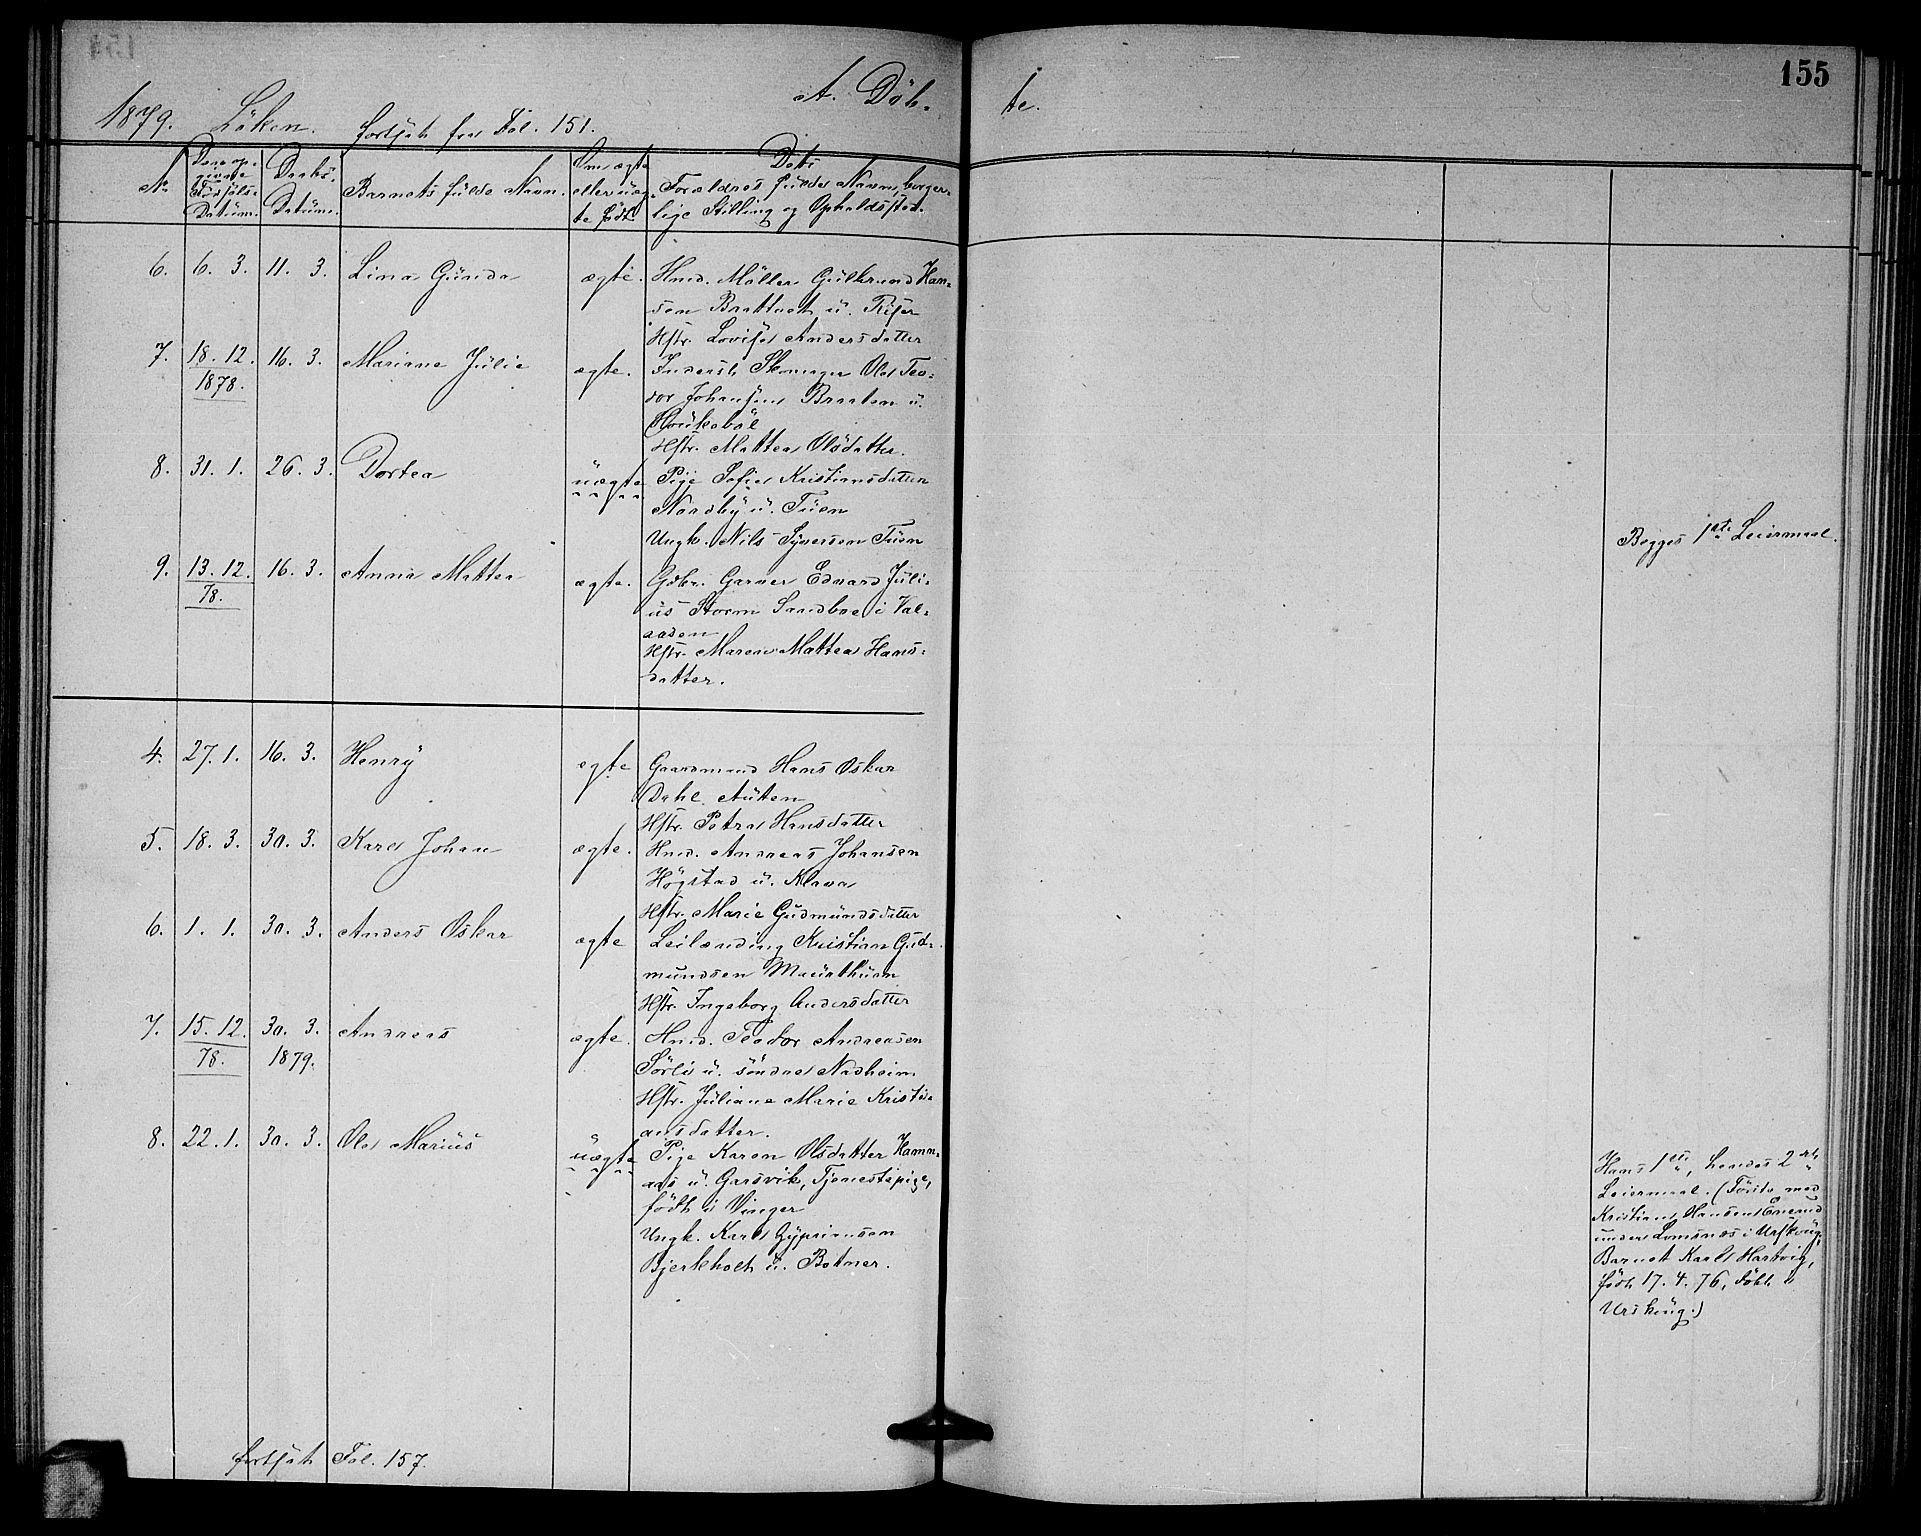 155
A. Döb-
te.
1879. Löken. fortsat fra Fol. 151.
No
Den op-
givne
Födsels-
Datum.
Daabs-
Datum.
Barnets fulde Navn.
Om ægte
eller uæg-
te födt.
Döbtes
Forældres fulde Navn, borger-
lige Stilling og Opholdssted.
6. 6. 3. 11. 3. Lina Gunda ægte. Hmd. Möller Gulbrand Han-
sen Brattvet u. Riser
Hstr. Lovise Andersdatter
7. 18. 12. 1878. 16. 3. Mariane Julie ægte. Inderst Skomager Ole Teo-
dor Johansen Braaten u.
Haukeböl
Hstr. Mattea Olsdatter.
8. 31. 1. 26. 3. Dortea uægte Pige Sofie Kristiansdatter
Nordby u. Tuen
Ungk. Nils Syversen Tuen
Begges 1ste Leiermaal.
9. 13. 12. 78. 16. 3. Anna Mattea ægte. Gdbr. Garver Edvard Juli-
us Storm Sandbæk i Val-
aasen
Hstr. Maren Mattea Hans-
datter.
4. 27. 1. 16. 3. Henry ægte Gaardmand Hans Oskar
Dahl Auten
Hstr. Petra Hansdatter
5. 18. 3. 30. 3. Karl Johan ægte. Hmd. Andreas Johansen
Högstad u. Kleva
Hstr. Marie Gudmundsdatter
6. 1. 1. 30. 3. Anders Oskar ægte Leilænding Kristian Gud-
mundsen Maurthuen
Hstr. Ingeborg Andersdatter
7. 15. 12. 78. 30. 3. 1879. Andreas ægte. Hmd. Teodor Andreasen
Sörli u. söndre Nadheim
Hstr. Juliane Marie Kristi-
ansdatter.
8. 22. 1. 30. 3. Ole Marius uægte Pige Karen Olsdatter Hamn-
aas u. Garsvik, Tjenestepige,
födt i Vinger
Ungk. Karl Gyprianson
Bjerkholt u. Botner.
Hans 1ste, hendes 2det
Leiermaal. (Förste med
Kristian Hansen Enerud
under Lomsnes i Urskoug.
Barnet Karl Hartvig,
födt 17. 4. 76, döbt i
Urskoug.)
fortsat Fol. 157.